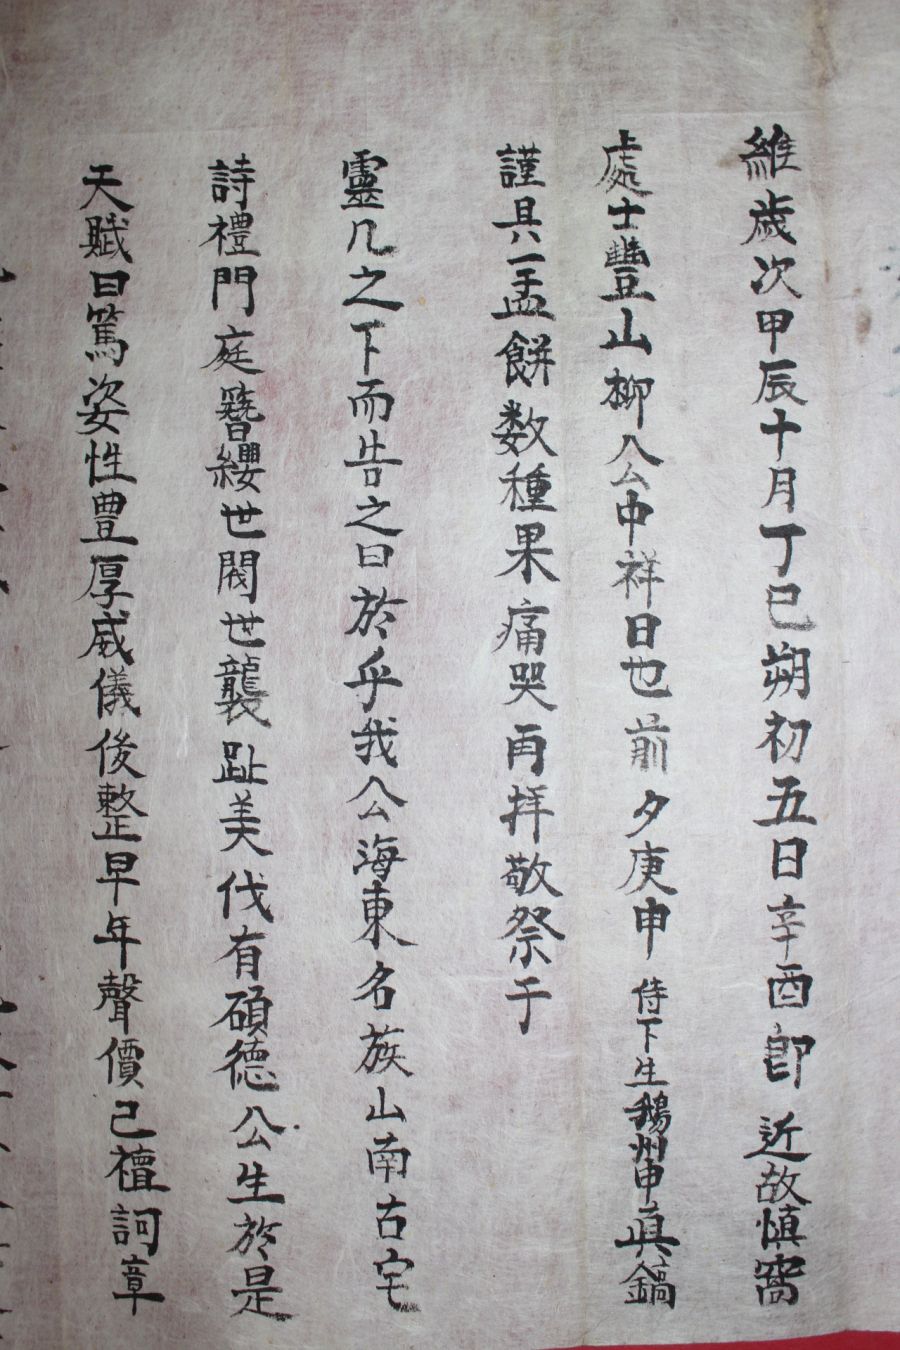 維歲次甲辰十月丁巳朔初五日辛酉即近故愼窩
處士豐山柳公中祥日也前夕庚申侍下生鵝州申眞鎬
謹具一盂餠数種果痛哭再拜敬祭于
靈几之下而告之曰於乎我公海東名族山南古宅
詩禮門庭簪纓世閥世襲趾美代有碩德公生於是
天賦曰篤姿性豊厚威儀俊整早年聲價己擅詞章